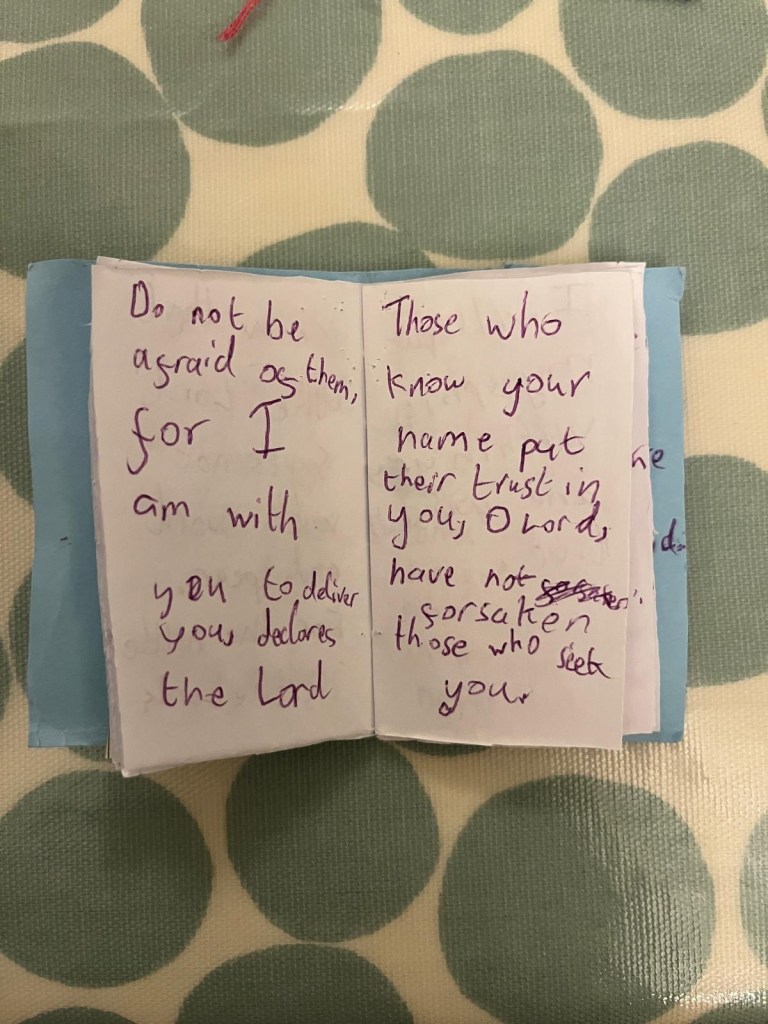 Do not be
afraid of them,
for I
am with
you to deliver
you, declares
the Lord
Those who
know your
name put
their trust in
you, O Lord,
have not
forsaken
those who seek
you.